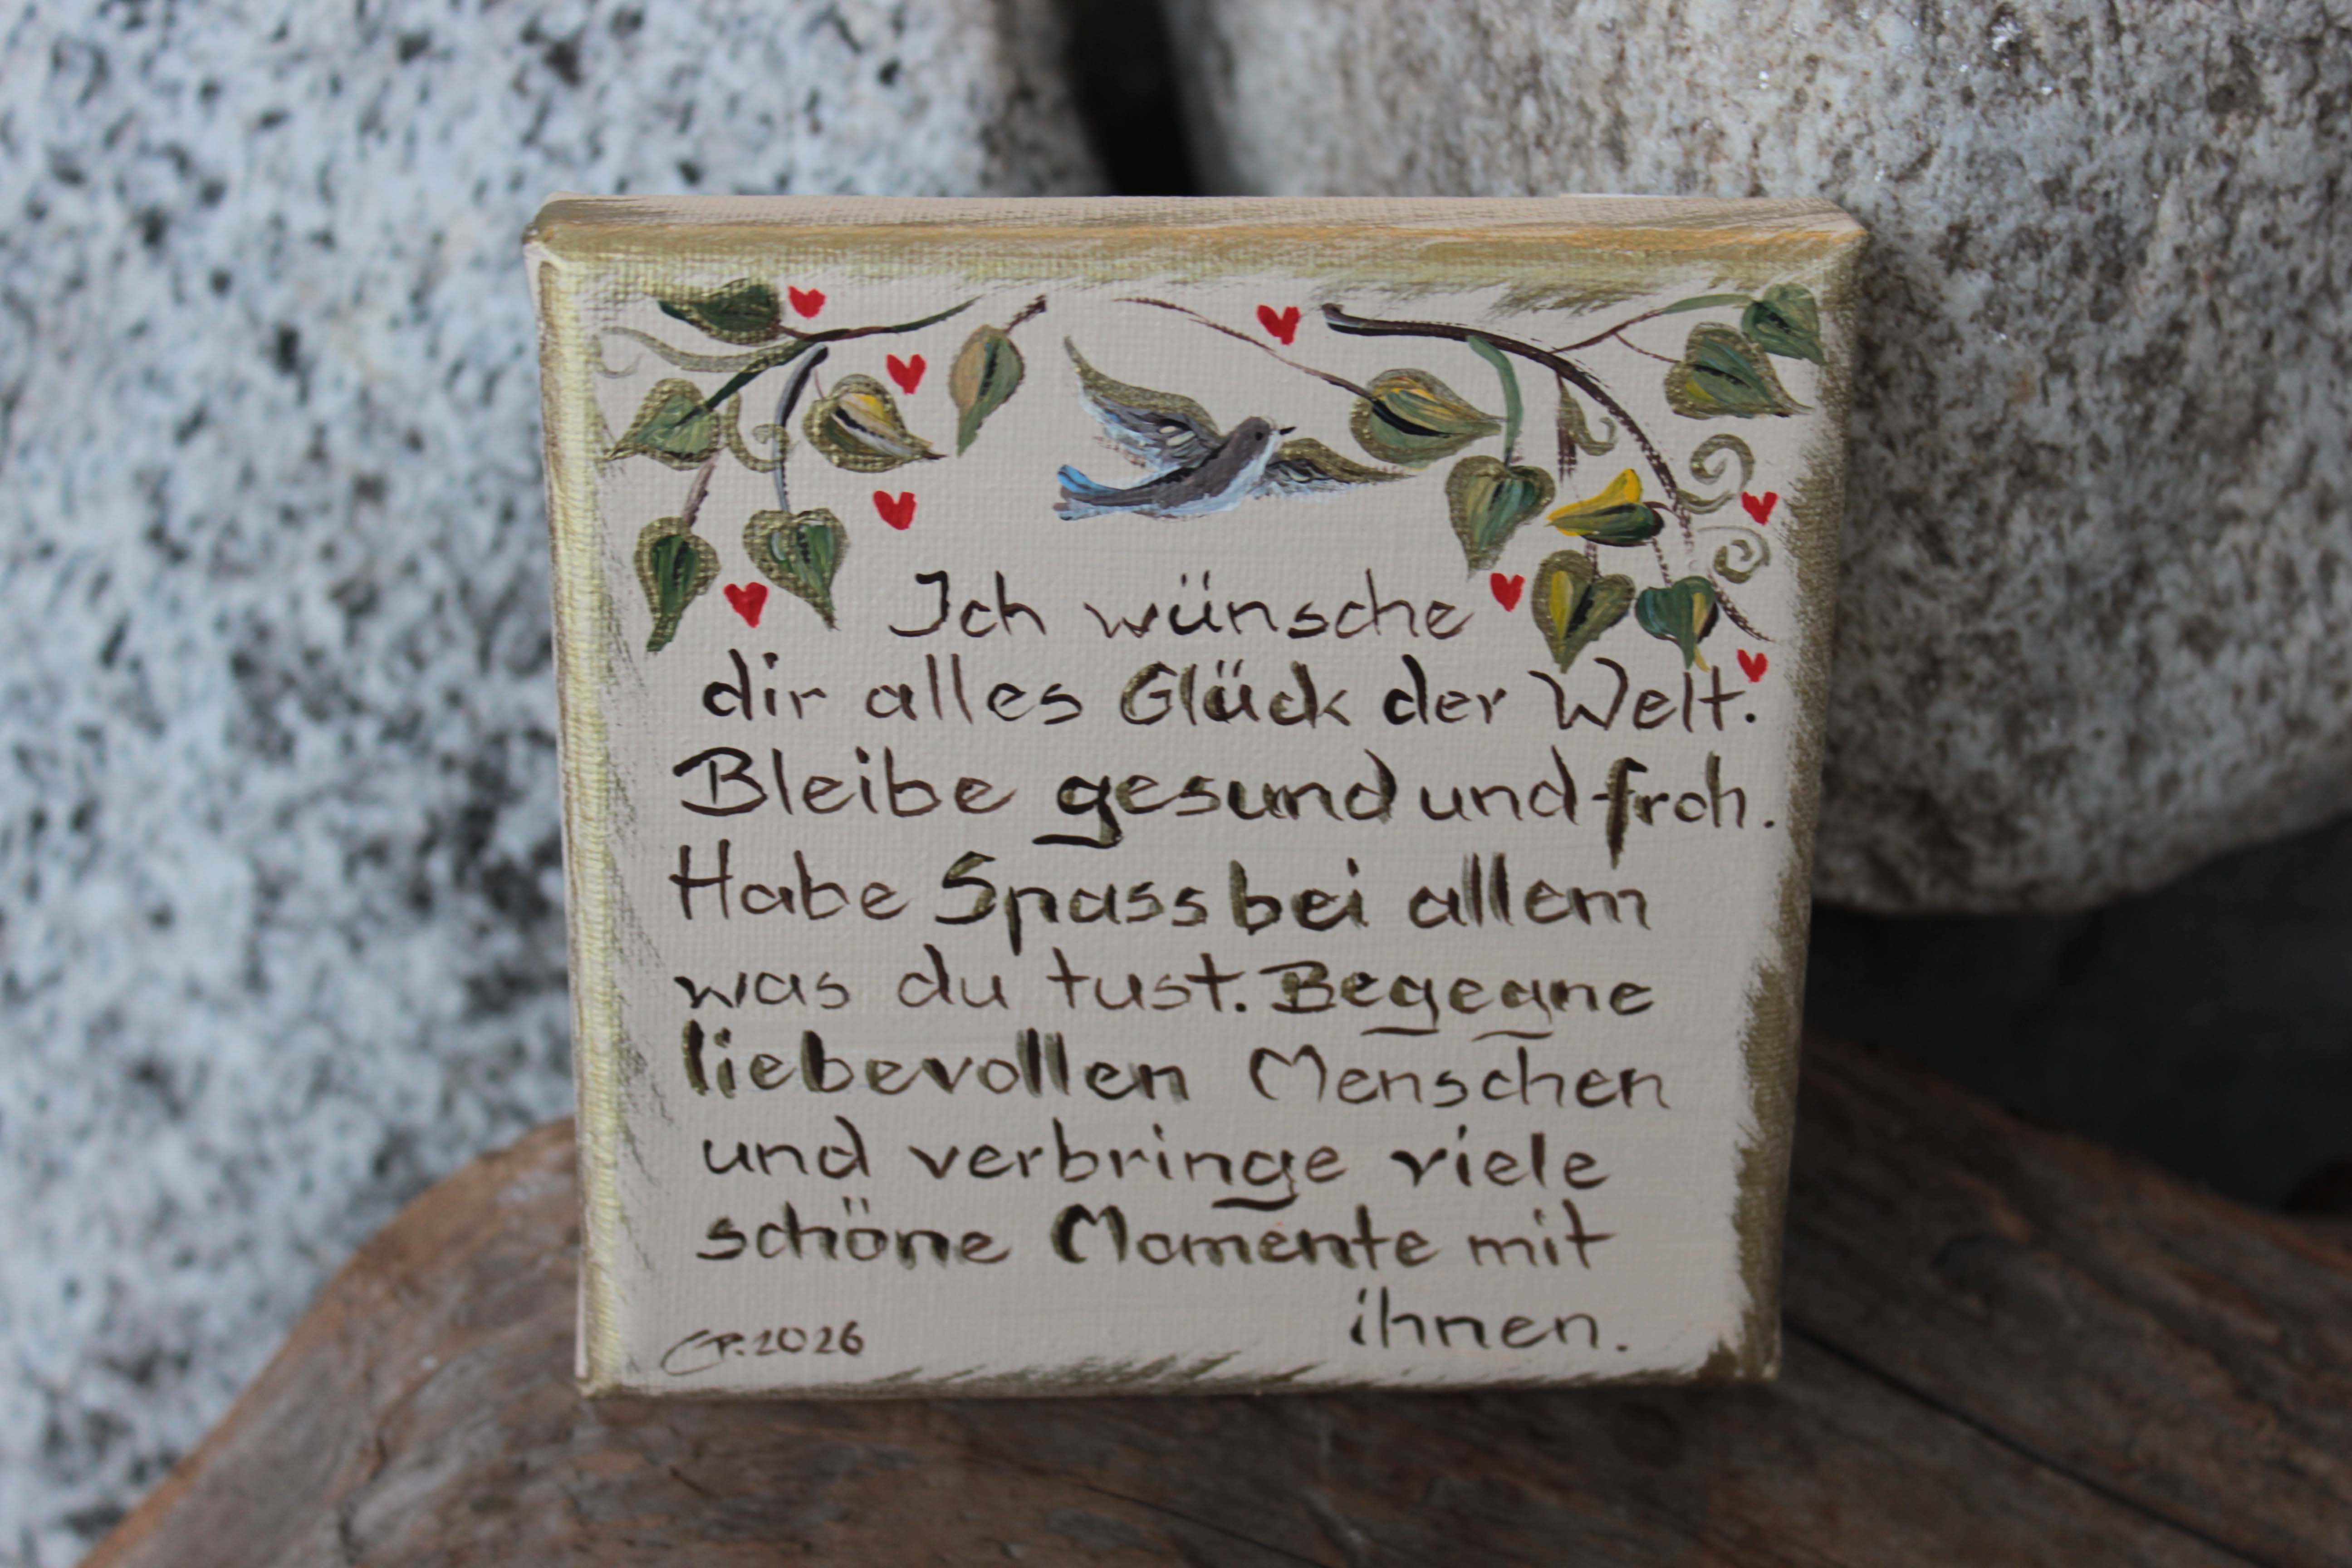 Ich wünsche
dir alles Glück der Welt.
Bleibe gesund und froh.
Habe Spass bei allem
was du tust. Begegne
liebevollen Menschen
und verbringe viele
schöne Momente mit
ihnen.
EP. 2026